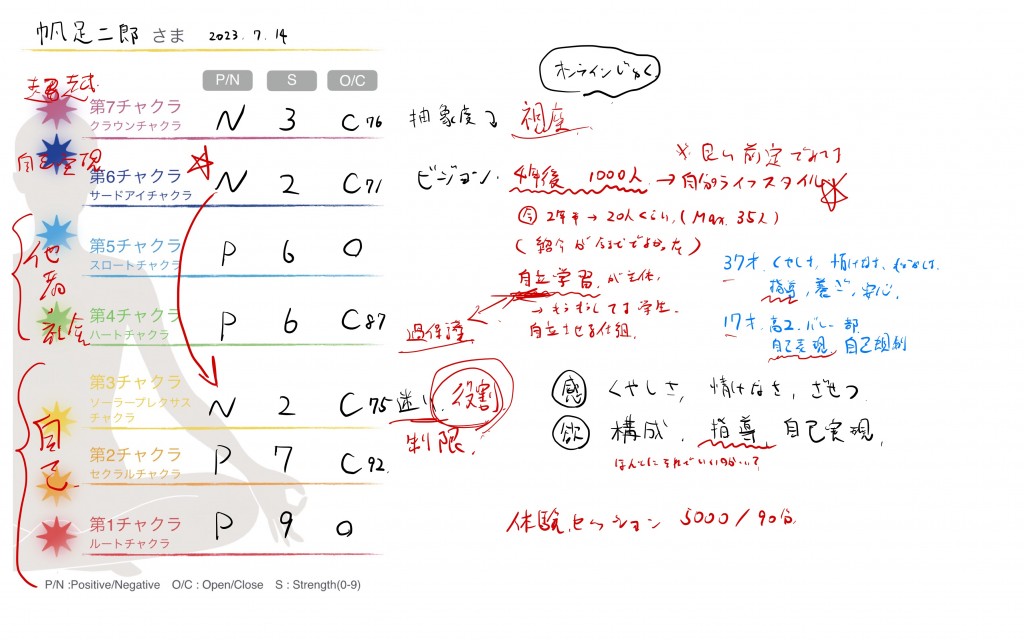 帆足二郎 さま 2023.7.14
オンラインじゅく
P/N S O/C
第7チャクラ
クラウンチャクラ
N 3 C76 抽象度 視座
自己実現
第6チャクラ
サードアイチャクラ
N 2 C71 ビジョン. 4年後 1000人 → 自分ライフスタイル
今 2年半 → 20人くらい (Max. 35人)
第5チャクラ
スロートチャクラ
P 6 O
他者
自立学習が主体.
自立させる仕組.
37才. くやしさ, 情けなさ,
指導, 養育, 安心.
第4チャクラ
ハートチャクラ
P 6 C87
過保護
17才. 高2. バレー部
自己表現 自己規制
第3チャクラ
ソーラープレクサス
チャクラ
N 2 C75 迷い. 役割
制限.
感 くやしさ, 情けなさ, ざせつ
欲 構成, 指導, 自己実現,
自己
第2チャクラ
セクラルチャクラ
P 7 C92.
第1チャクラ
ルートチャクラ
P 9 O
体験セッション 5000/90分
P/N :Positive/Negative O/C : Open/Close S : Strength(0-9)